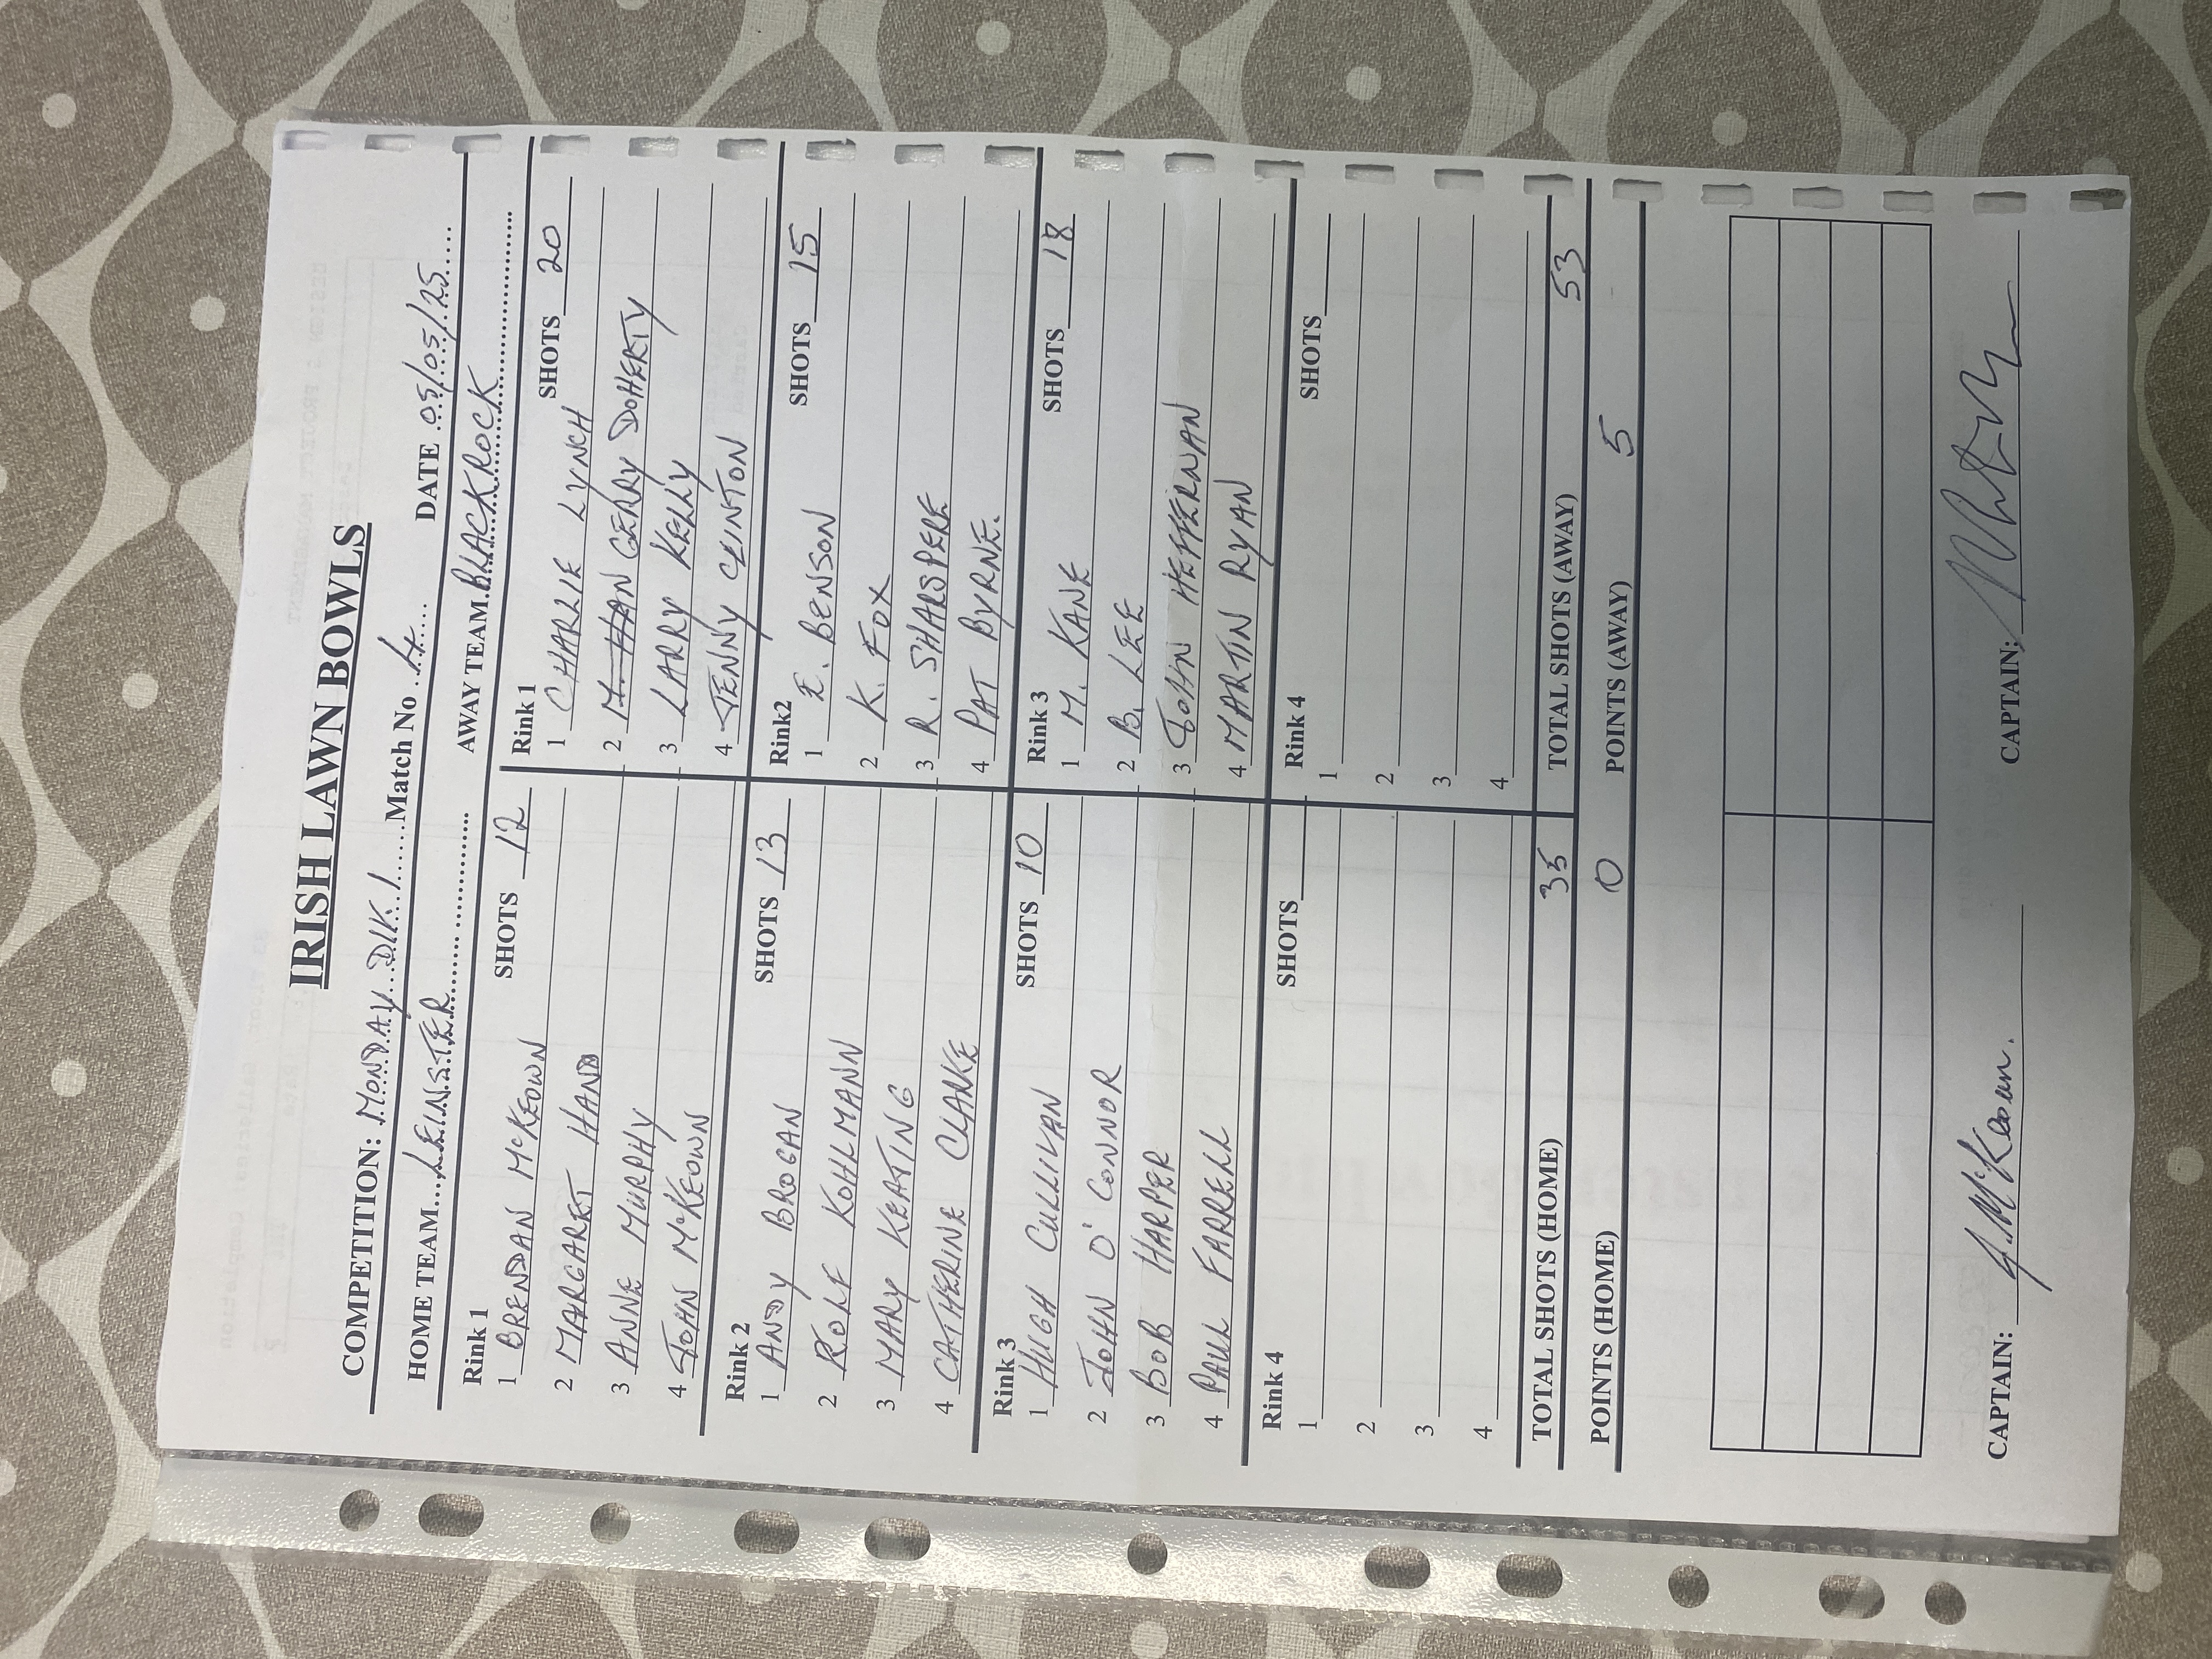 IRISH LAWN BOWLS
COMPETITION: MONDAY DIV. 1 Match No 4 DATE 05/05/25
HOME TEAM LEINSTER AWAY TEAM BLACKROCK
Rink 1 SHOTS 12
1 BRENDAN McKEOWN
2 MARGARET HAND
3 ANNE MURPHY
4 JOHN McKEOWN
Rink 1 SHOTS 20
1 CHARLIE LYNCH
2 GERRY DOHERTY
3 LARRY KELLY
4 JENNY CLINTON
Rink 2 SHOTS 13
1 ANDY BROGAN
2 ROLF KOHLMANN
3 MARY KEATING
4 CATHERINE CLARKE
Rink2 SHOTS 15
1 E. BENSON
2 K. FOX
3 R. SHARSPERE
4 PAT BYRNE.
Rink 3 SHOTS 10
1 HUGH CULLIVAN
2 JOHN O'CONNOR
3 BOB HARPER
4 PAUL FARRELL
Rink 3 SHOTS 18
1 M. KANE
2 B. LEE
3 JOHN HEFFERNAN
4 MARTIN RYAN
Rink 4 SHOTS
1
2
3
4
Rink 4 SHOTS
1
2
3
4
TOTAL SHOTS (HOME) 35 TOTAL SHOTS (AWAY) 53
POINTS (HOME) 0 POINTS (AWAY) 5
CAPTAIN: J. McKeown. CAPTAIN: